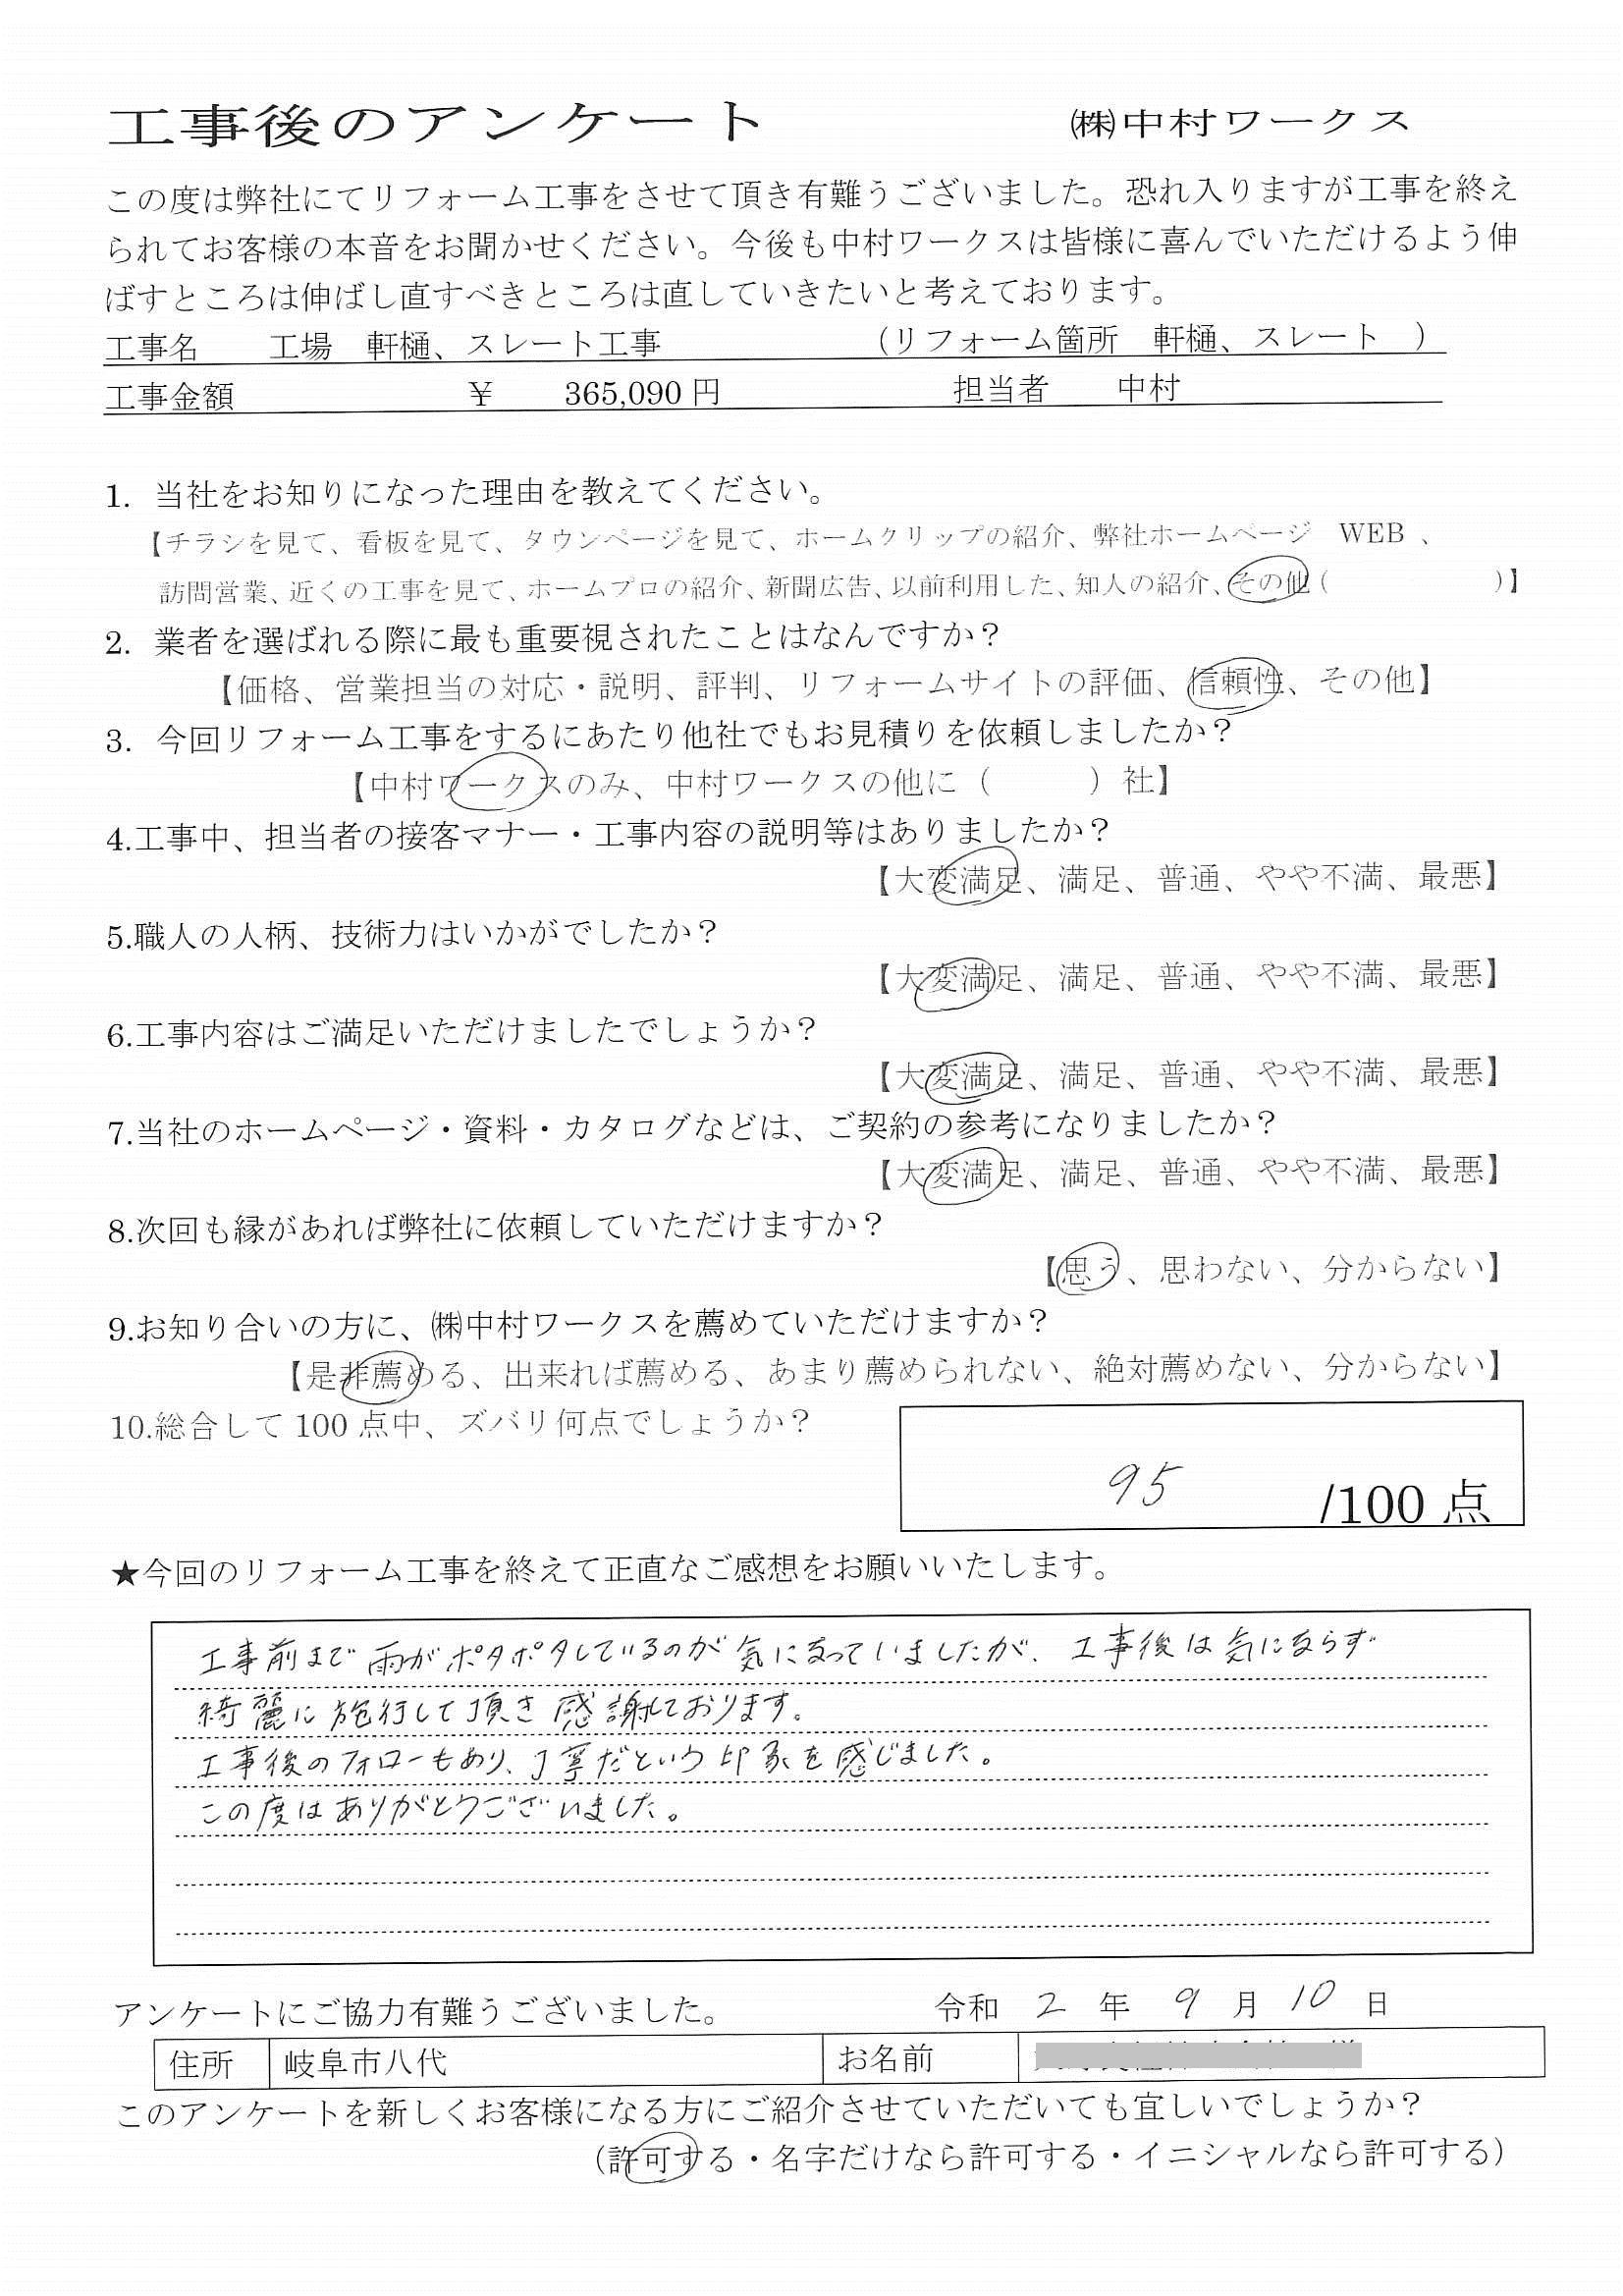 工事後のアンケート　㈱中村ワークス
この度は弊社にてリフォーム工事をさせて頂き有難うございました。恐れ入りますが工事を終え
られてお客様の本音をお聞かせください。今後も中村ワークスは皆様に喜んでいただけるよう伸
ばすところは伸ばし直すべきところは直していきたいと考えております。
工事名　工場　軒樋、スレート工事　（リフォーム箇所　軒樋、スレート　）
工事金額　￥　365,090 円　担当者　中村
1. 当社をお知りになった理由を教えてください。
【チラシを見て、看板を見て、タウンページを見て、ホームクリップの紹介、弊社ホームページ　WEB 、
訪問営業、近くの工事を見て、ホームプロの紹介、新聞広告、以前利用した、知人の紹介、その他（　　　）】
2. 業者を選ばれる際に最も重要視されたことはなんですか？
【価格、営業担当の対応・説明、評判、リフォームサイトの評価、信頼性、その他】
3. 今回リフォーム工事をするにあたり他社でもお見積りを依頼しましたか？
【中村ワークスのみ、中村ワークスの他に（　　　）社】
4.工事中、担当者の接客マナー・工事内容の説明等はありましたか？
【大変満足、満足、普通、やや不満、最悪】
5.職人の人柄、技術力はいかがでしたか？
【大変満足、満足、普通、やや不満、最悪】
6.工事内容はご満足いただけましたでしょうか？
【大変満足、満足、普通、やや不満、最悪】
7.当社のホームページ・資料・カタログなどは、ご契約の参考になりましたか？
【大変満足、満足、普通、やや不満、最悪】
8.次回も縁があれば弊社に依頼していただけますか？
【思う、思わない、分からない】
9.お知り合いの方に、㈱中村ワークスを薦めていただけますか？
【是非薦める、出来れば薦める、あまり薦められない、絶対薦めない、分からない】
10.総合して 100 点中、ズバリ何点でしょうか？
95 /100 点
★今回のリフォーム工事を終えて正直なご感想をお願いいたします。
工事前まで雨がポタポタしているのが気になっていましたが、工事後は気にならず
綺麗に施行して頂き感謝しております。
工事後のフォローもあり、丁寧だという印象を感じました。
この度はありがとうございました。
アンケートにご協力有難うございました。　令和 2 年 9 月 10 日
住所　岐阜市八代　お名前
このアンケートを新しくお客様になる方にご紹介させていただいても宜しいでしょうか？
（許可する・名字だけなら許可する・イニシャルなら許可する）